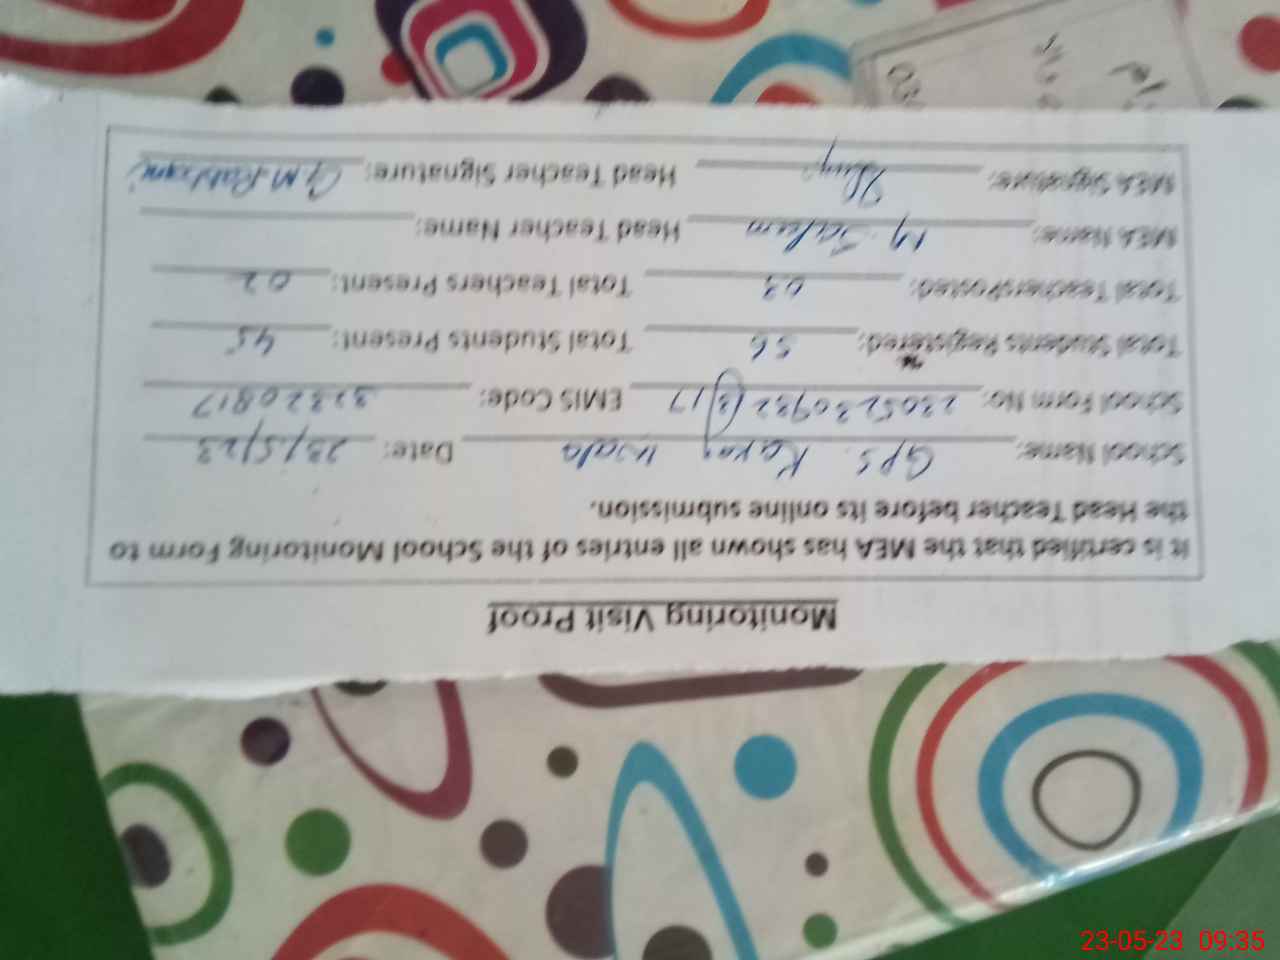 Monitoring Visit Proof
It is certified that the MEA has shown all entries of the School Monitoring Form to
the Head Teacher before its online submission.
School Name: GPS. Karay wala Date: 23/5/23
School Form No: 2305230932 17 EMIS Code: 31320817
Total Students Registered: 56 Total Students Present: 45
Total Teachers Posted: 03 Total Teachers Present: 02
MEA Name: M. Saleem Head Teacher Name:
MEA Signature: Head Teacher Signature: G.M. Rabbani
23-05-23 09:35